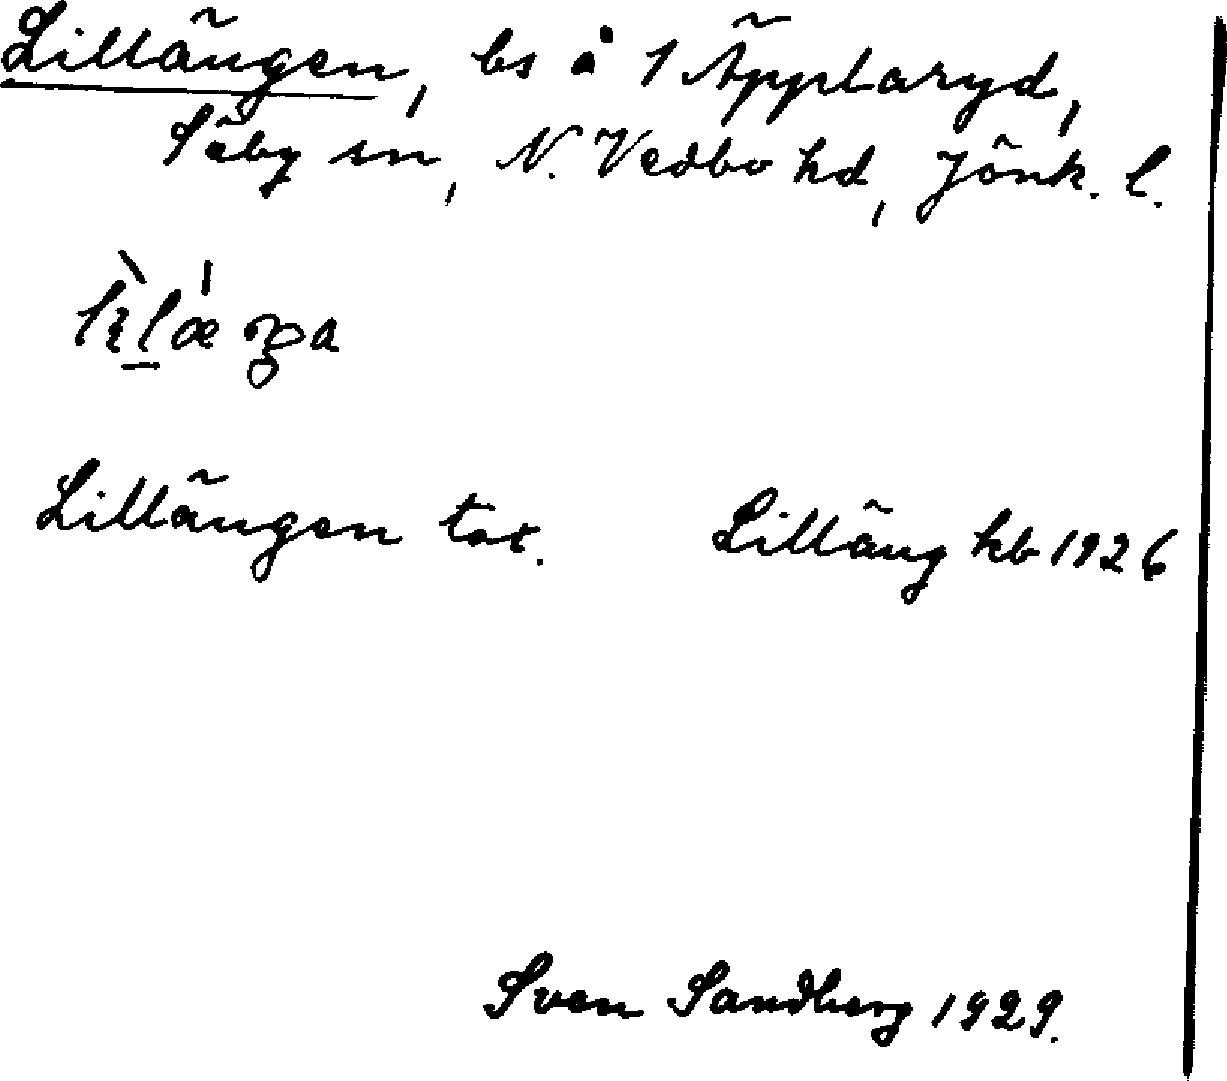 Lillängen, bs å 1 Äpplaryd,
Säby sn, N. Vedbo hd, Jönk. l.
Lillängen tax. Lilläng kb 1926
Sven Sandberg 1929.